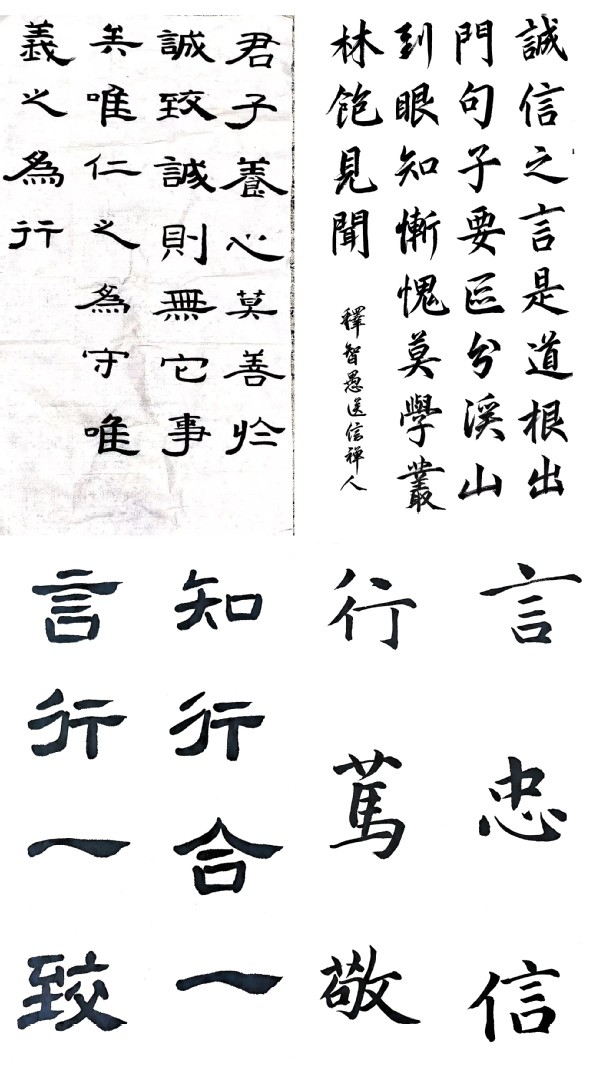 誠信之言是道根出
門句子要区分溪山
到眼知慚愧莫學叢
林飽見聞
釋智愚送信禪人
君子養心莫善於
誠致誠則無它事
矣唯仁之為守唯
義之為行
言忠信
行篤敬
知行合一
言行一致